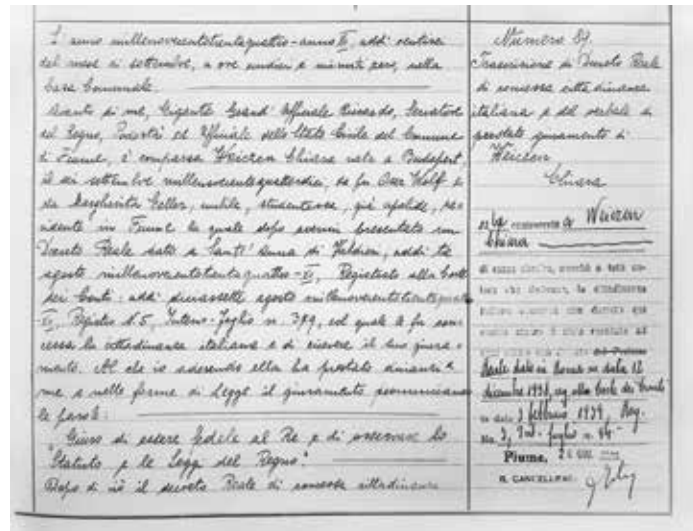 L'anno millenovecentotrentaquattro - anno XII, addì ventisei
del mese di settembre, a ore undici e minuti zero, nella
Casa Comunale.
Avanti di me, Gigante Grand'Ufficiale Riccardo, Senatore
del Regno, Podestà ed Ufficiale dello Stato Civile del Comune
di Fiume, è comparsa Weiczen Chiara nata a Budapest,
il sei settembre millenovecentoquattordici, da fu Oser Wolf e
da Margherita Geller, nubile, studentessa, già apolide, re-
sidente in Fiume la quale dopo avermi presentato un
Decreto Reale dato a Sant'Anna di Valdieri, addì tre
agosto millenovecentotrentaquattro - XII, Registrato alla Corte
dei Conti, addì diciassette agosto millenovecentotrentaquattro
XII, Registro N. 5, Interno - foglio n. 379, col quale le fu con-
cessa la cittadinanza italiana e di ricevere il suo giura-
mento. Al che io aderendo ella ha prestato dinanzi a
me e nelle forme di Legge il giuramento pronunciando
le parole:
"Giuro di essere fedele al Re e di osservare lo
"Statuto e le Leggi del Regno."
Dopo di ciò il decreto Reale di concessa cittadinanza
Numero 87.
Trascrizione di Decreto Reale
di concessa cittadinanza
italiana e del verbale di
prestato giuramento di
Weiczen
Chiara
a Weiczen
Chiara
la cittadinanza
Reale dato in Roma in data 12
dicembre 1938, reg. alla Corte dei Conti
in data 3 febbraio 1939, Reg.
foglio n. 45
Fiume, 26
IL CANCELLIERE